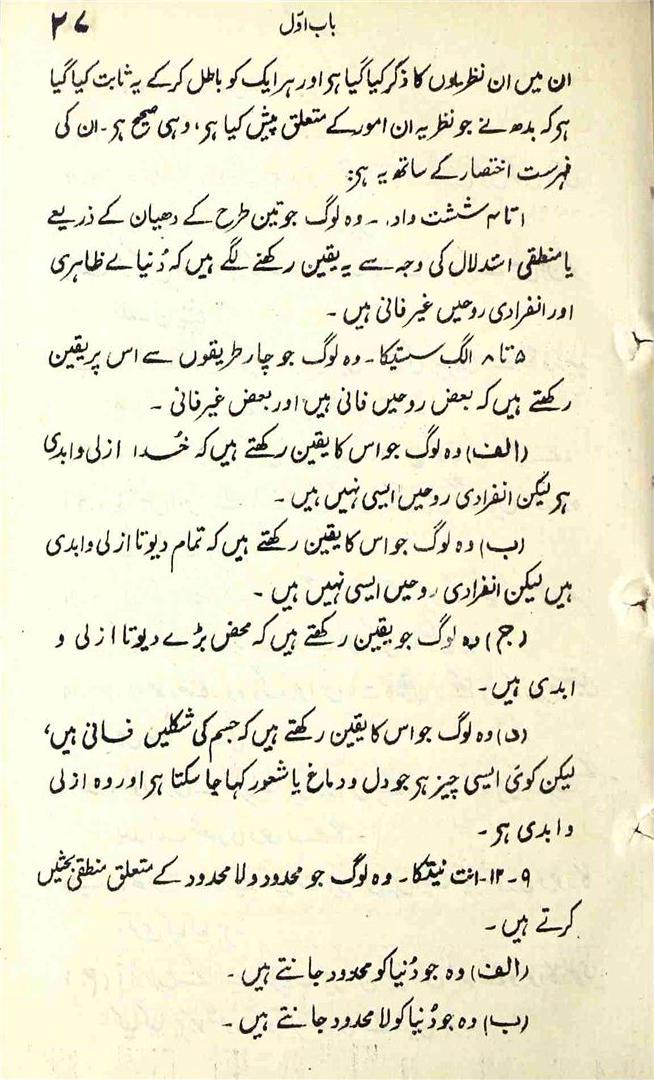 باب اوّل ۲۷
ان میں ان نظریوں کا ذکر کیا گیا ہی اور ہر ایک کو باطل کر کے یہ ثابت کیا گیا
ہی کہ بدھ نے جو نظریہ ان امور کے متعلق پیش کیا ہی، وہی صحیح ہی۔ ان کی
فہرست اختصار کے ساتھ یہ ہی:
۱ تا ۴ ششت واد۔ ۔ وہ لوگ جو تین طرح کے دھیان کے ذریعے
یا منطقی استدلال کی وجہ سے یہ یقین رکھنے لگے ہیں کہ دُنیاے ظاہری
اور انفرادی روحیں غیر فانی ہیں۔
۵ تا ۸ الگ سستیکا۔ وہ لوگ جو چار طریقوں سے اس پر یقین
رکھتے ہیں کہ بعض روحیں فانی ہیں اور بعض غیر فانی ۔
(الف) وہ لوگ جو اس کا یقین رکھتے ہیں کہ خُدا ازلی و ابدی
ہی لیکن انفرادی روحیں ایسی نہیں ہیں ۔
(ب) وہ لوگ جو اس کا یقین رکھتے ہیں کہ تمام دیوتا ازلی و ابدی
ہیں لیکن انفرادی روحیں ایسی نہیں ہیں ۔
(ج) وہ لوگ جو یقین رکھتے ہیں کہ محض بڑے دیوتا ازلی و
ابدی ہیں۔
(د) وہ لوگ جو اس کا یقین رکھتے ہیں کہ جسم کی شکلیں فانی ہیں،
لیکن کوئی ایسی چیز ہی جو دل و دماغ یا شعور کہا جا سکتا ہی اور وہ ازلی
و ابدی ہی ۔
۹ ۔ ۱۲۔ انت نیتکا۔ وہ لوگ جو محدود و لا محدود کے متعلق منطقی بحثیں
کرتے ہیں ۔
(الف) وہ جو دُنیا کو محدود جانتے ہیں ۔
(ب) وہ جو دُنیا کو لا محدود جانتے ہیں ۔